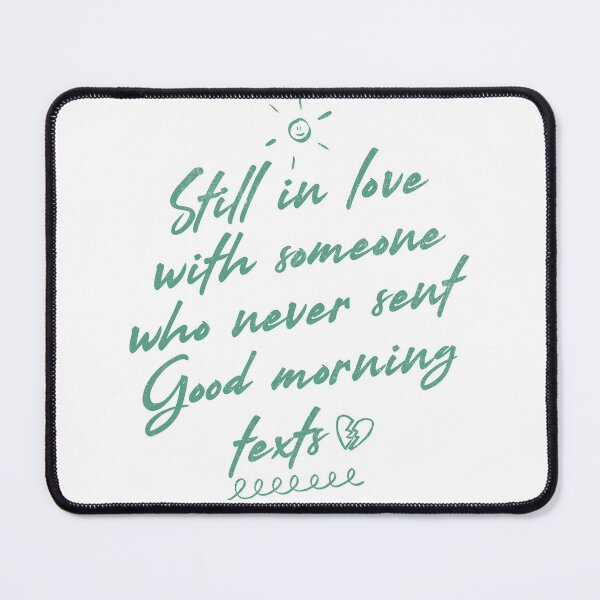 Still in love
with someone
who never sent
Good morning
texts